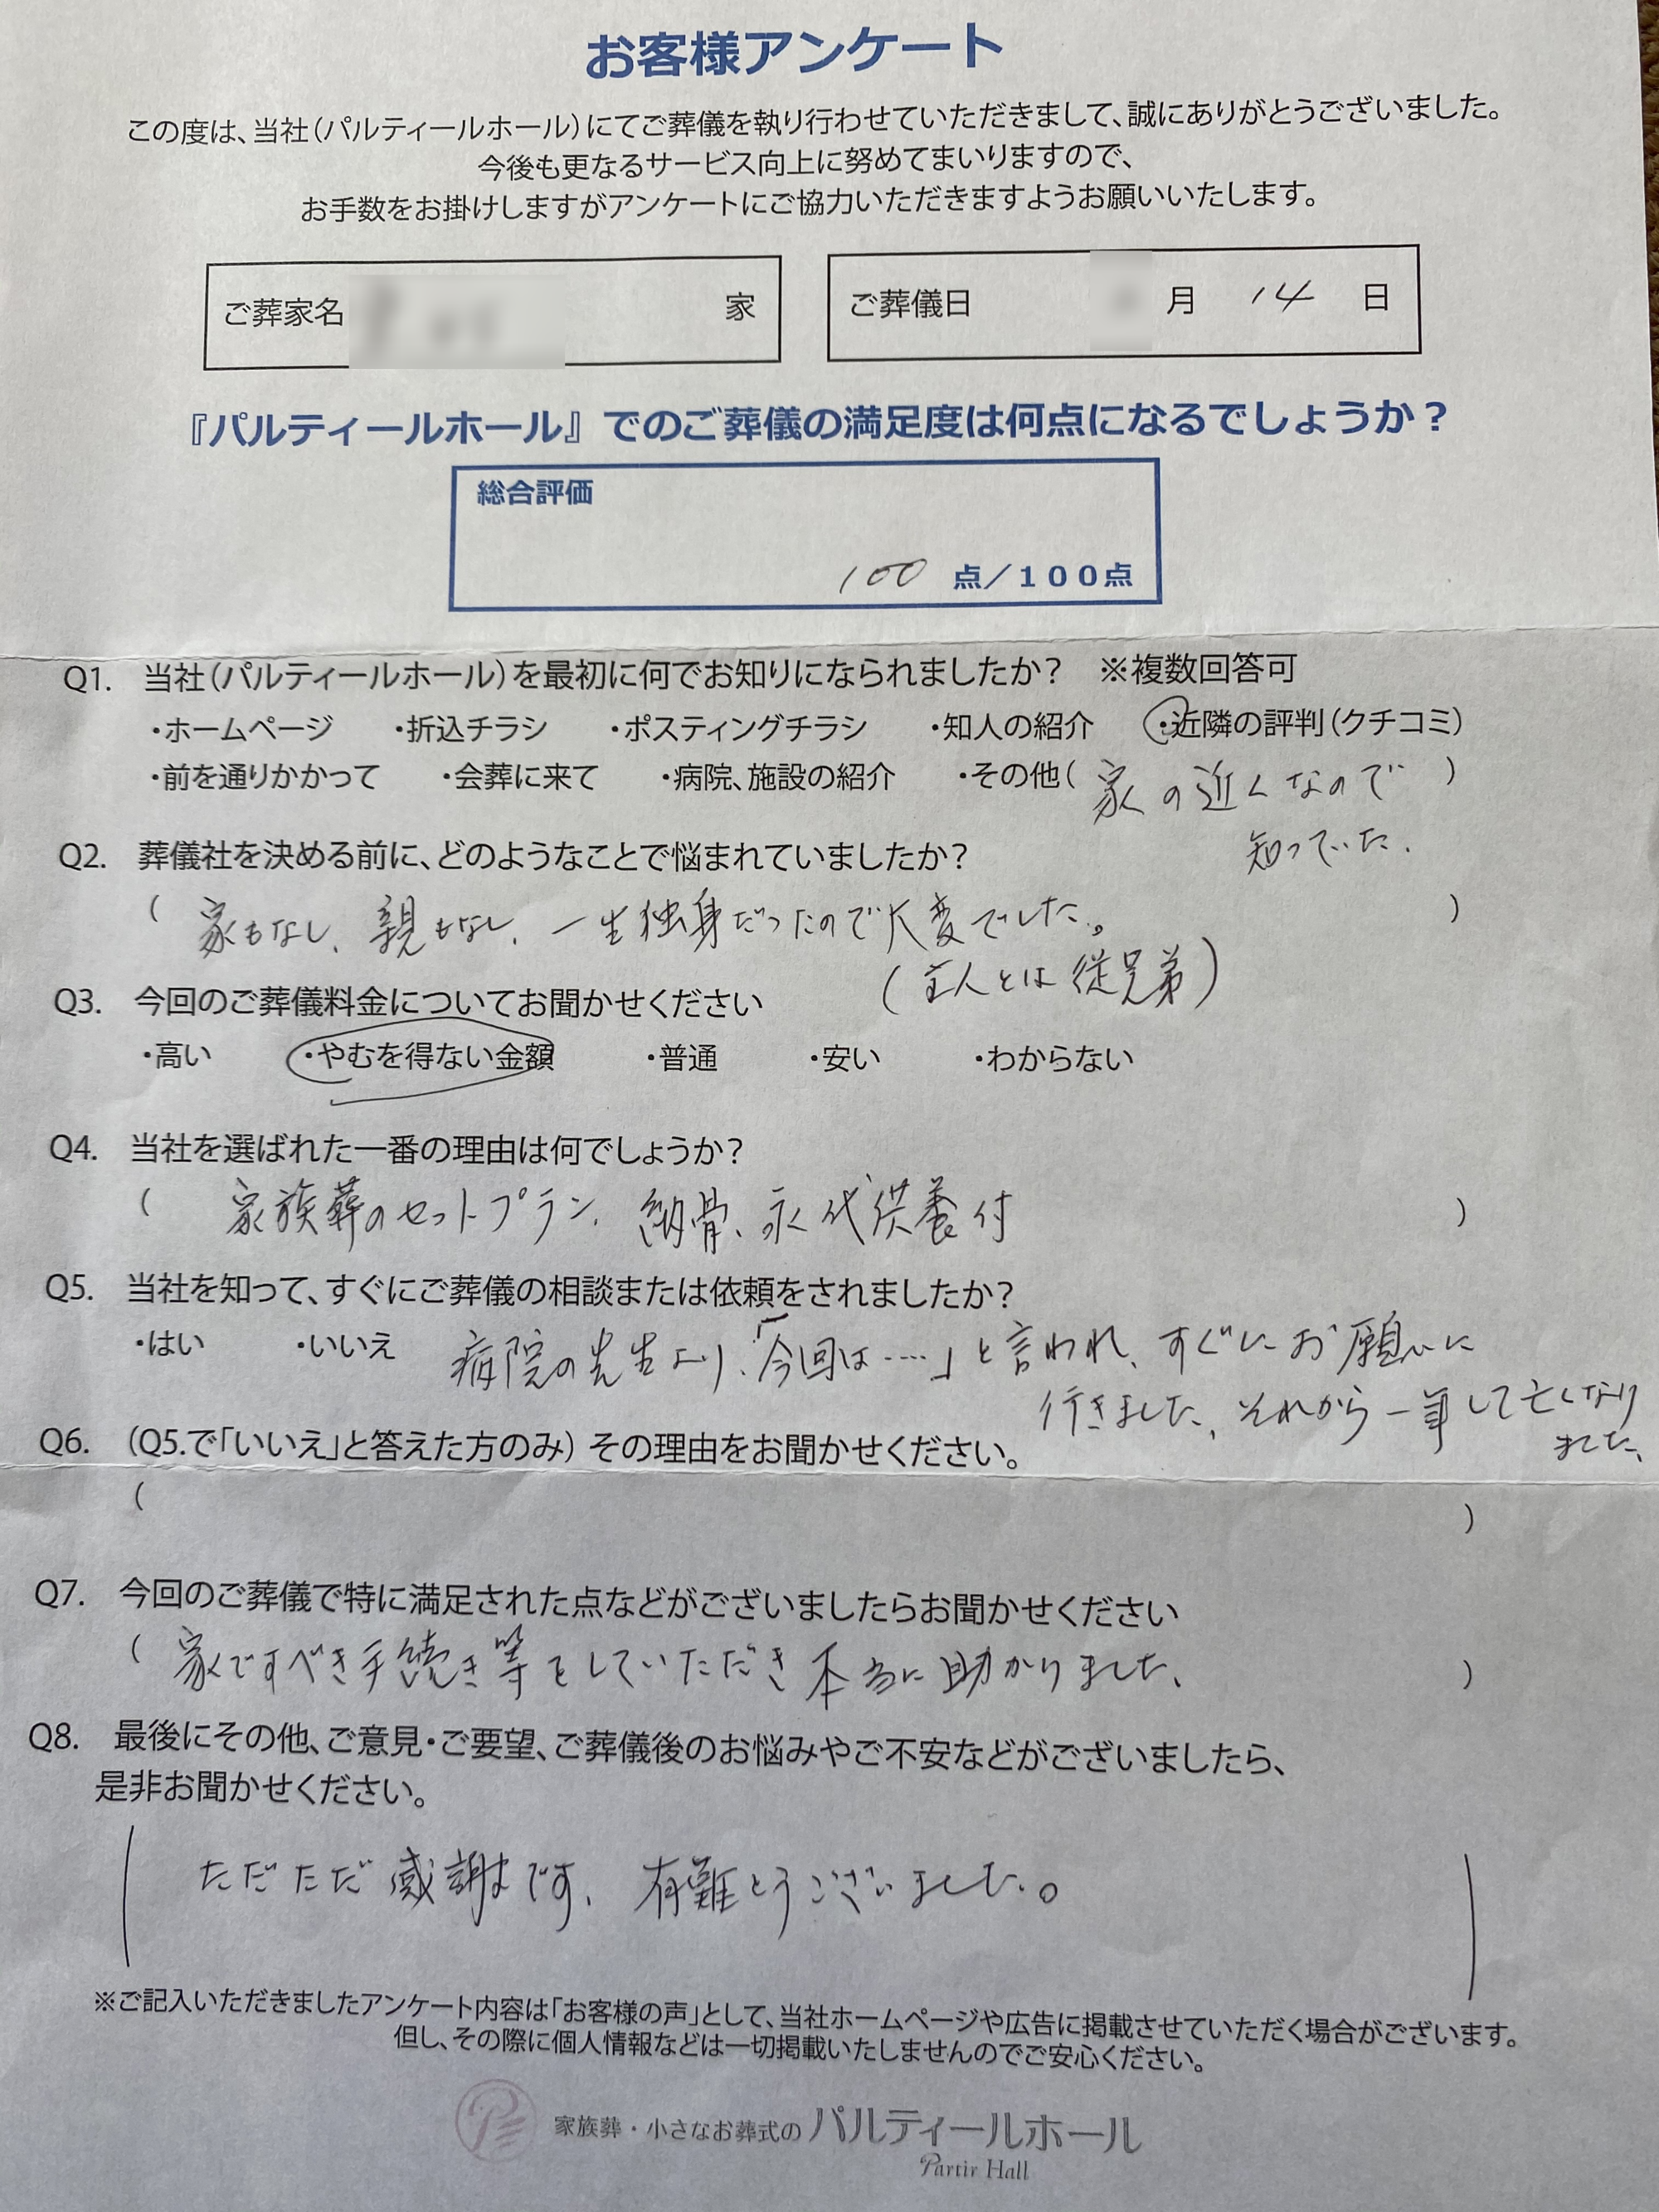 お客様アンケート
この度は、当社（パルティールホール）にてご葬儀を執り行わせていただきまして、誠にありがとうございました。
今後も更なるサービス向上に努めてまいりますので、
お手数をお掛けしますがアンケートにご協力いただきますようお願いいたします。
ご葬家名 家 ご葬儀日 月 14 日
『パルティールホール』でのご葬儀の満足度は何点になるでしょうか？
総合評価
100 点／１００点
Q1. 当社（パルティールホール）を最初に何でお知りになられましたか？ ※複数回答可
・ホームページ ・折込チラシ ・ポスティングチラシ ・知人の紹介 ・近隣の評判（クチコミ）
・前を通りかかって ・会葬に来て ・病院、施設の紹介 ・その他（ 家の近くなので ）
知っていた.
Q2. 葬儀社を決める前に、どのようなことで悩まれていましたか？
（ 家もなし、親もなし、一生独身だったので大変でした。 ）
（主人とは従兄弟）
Q3. 今回のご葬儀料金についてお聞かせください
・高い ・やむを得ない金額 ・普通 ・安い ・わからない
Q4. 当社を選ばれた一番の理由は何でしょうか？
（ 家族葬のセットプラン、納骨、永代供養付 ）
Q5. 当社を知って、すぐにご葬儀の相談または依頼をされましたか？
・はい ・いいえ 病院の先生より、「今回は‥‥」と言われ、すぐにお願いに
行きました、それから一年して亡くなり
ました、
Q6. （Q5.で「いいえ」と答えた方のみ）その理由をお聞かせください。
（ ）
Q7. 今回のご葬儀で特に満足された点などがございましたらお聞かせください
（ 家ですべき手続き等をしていただき本当に助かりました、 ）
Q8. 最後にその他、ご意見・ご要望、ご葬儀後のお悩みやご不安などがございましたら、
是非お聞かせください。
（ ただただ感謝です、有難とうございました。 ）
※ご記入いただきましたアンケート内容は「お客様の声」として、当社ホームページや広告に掲載させていただく場合がございます。
但し、その際に個人情報などは一切掲載いたしませんのでご安心ください。
家族葬・小さなお葬式の パルティールホール
Partir Hall